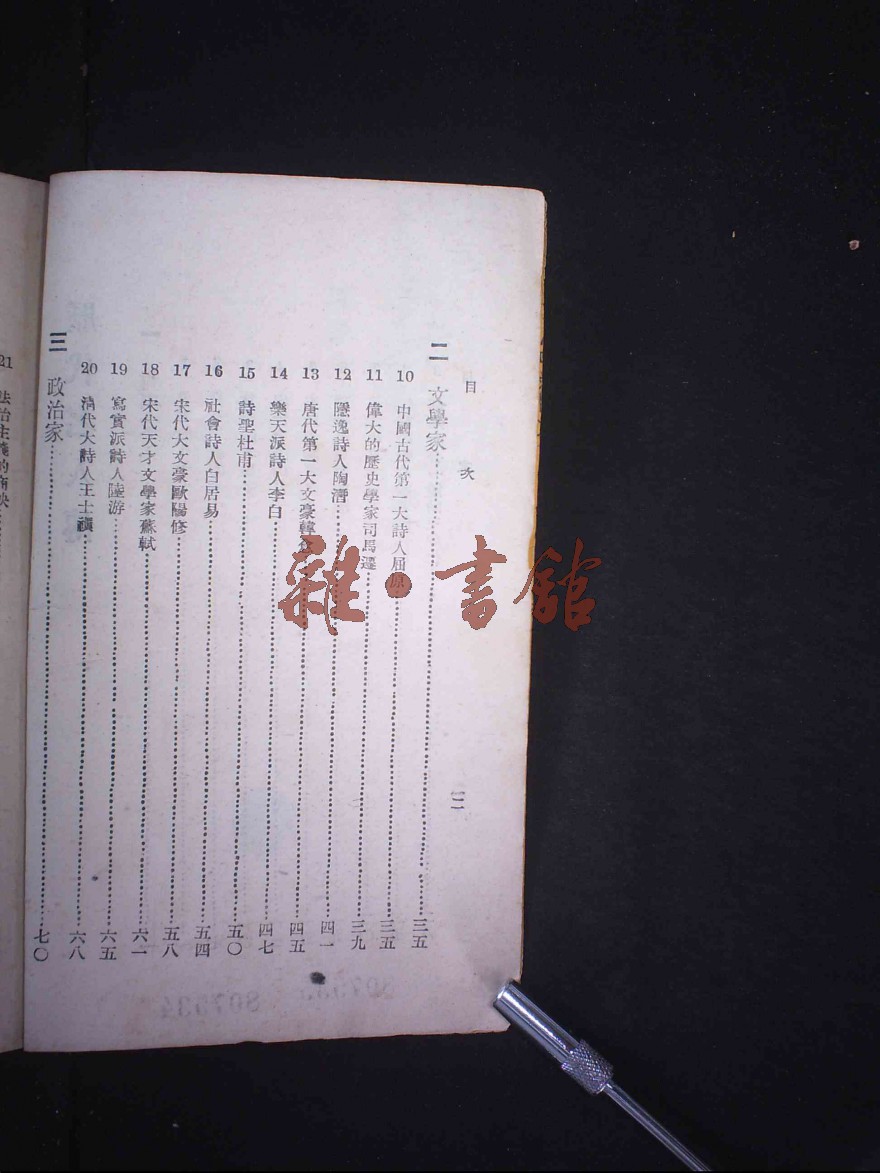 目 次
二
二 文學家 三五
10 中國古代第一大詩人屈原 三五
11 偉大的歷史學家司馬遷 三九
12 隱逸詩人陶潛 四一
13 唐代第一大文豪韓愈 四五
14 樂天派詩人李白 四七
15 詩聖杜甫 五〇
16 社會詩人白居易 五四
17 宋代大文豪歐陽修 五八
18 宋代天才文學家蘇軾 六一
19 寫實派詩人陸游 六五
20 清代大詩人王士禛 六八
三 政治家 七〇
21 法治主義的商鞅
雜·書館
807534